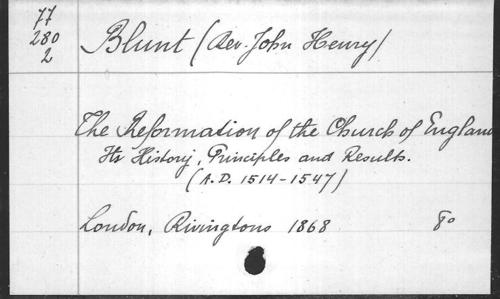 77
280
2
Blunt (Rev. John Henry)
The Reformation of the Church of England
Its History, Principles and Results.
(A.D. 1514-1547)
London, Rivingtons 1868 8º